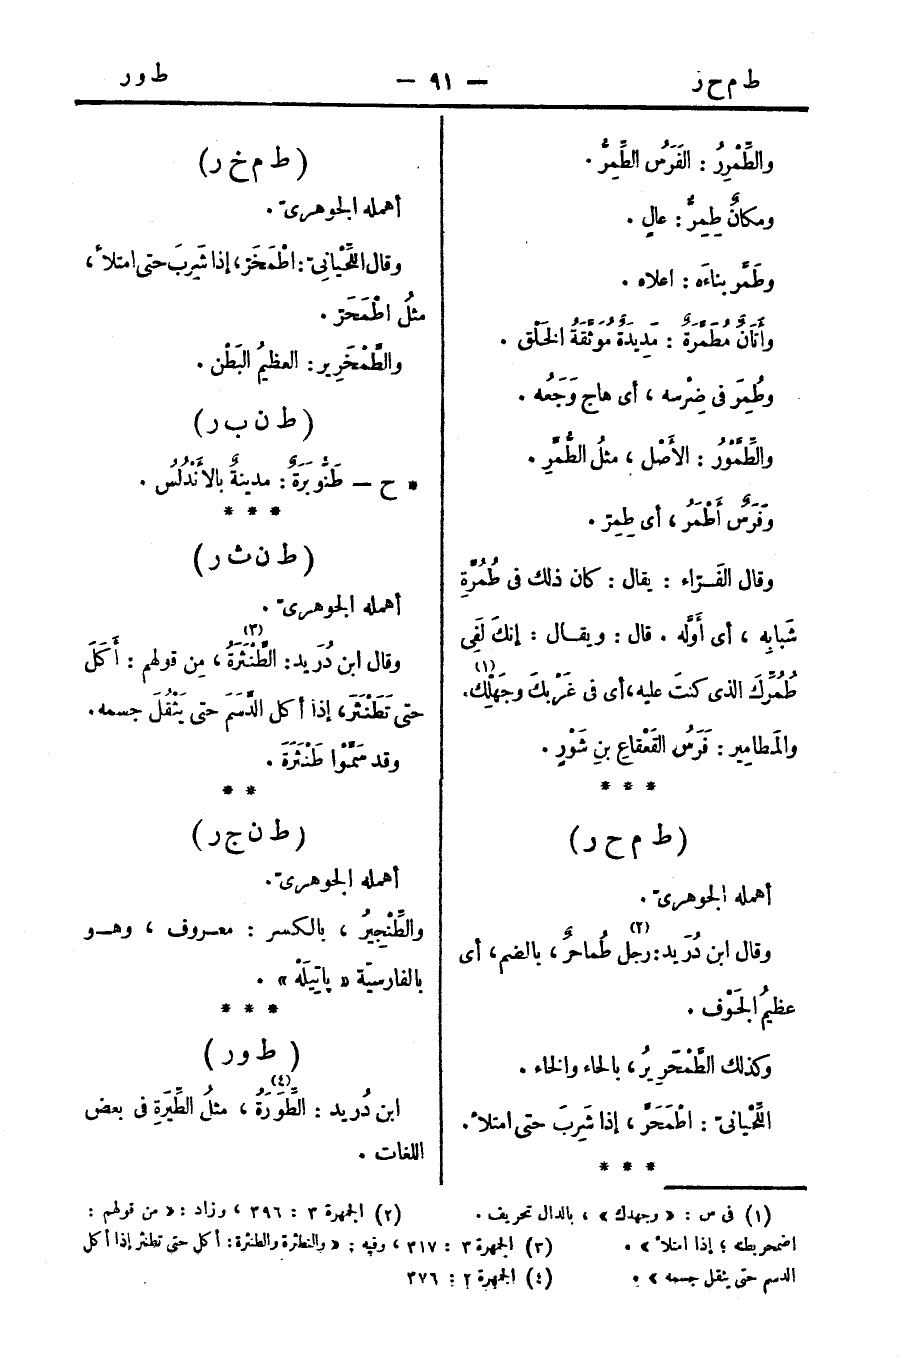 ط م ح ر
— ٩١ —
ط و ر
والطِّمْرِرُ : الفَرَسُ الطِّمِرُّ .
ومكانٌ طِمِرٌّ : عالٍ .
وطَمَّر بناءَه : اعلاه .
وأَتَانٌ مُطَمَّرَةٌ : مَدِيدَةٌ مُوَثَّقَةُ الخَلْق .
وطُمِرَ فى ضِرْسه ، أى هاج وَجَعُه .
والطِّمَّوْرُ : الأَصْل ، مثلُ الطُّمَّرِ .
وَفَرَسٌ أَطْمَرُ ، أى طِمِرّ .
وقال الفَرّاء : يقال : كان ذلك فى طُمُرَّةِ
شَبابِه ، أى أَوَّله . قال : ويقال : إنكَ لَفِى
طُمُرِّكَ الذى كنتَ عليه، أى فى غَرْبِكَ وجَهْلِك(١).
والمَطامِير : فَرَسُ القَعْقاعِ بنِ شَوْرٍ .
* * *
( ط م ح ر )
أهمله الجوهرىّ .
وقال ابن دُرَيد(٢): رجل طُماحِرٌ ، بالضم، أى
عظيمُ الجَوْف .
وكذلك الطَّمْحَرِيرُ ، بالحاء والخاء .
اللِّحْيانىّ : اطْمَحَرَّ ، إذا شَرِبَ حتى امتلأ .
* * *
( ط م خ ر )
أهمله الجوهرىّ .
وقال اللِّحْيانىّ : اطْمَخَرّ، إذا شَرِبَ حتى امتلأ ،
مثلُ اطْمَحَرّ .
والطَّمْخَرِير : العظيمُ البَطْن .
( ط ن ب ر )
* ح — طَنُّوبَرَةٌ : مدينةٌ بالأَنْدلُس .
* * *
( ط ن ث ر )
أهمله الجوهرىّ .
وقال ابن دُرَيد: الطَّنْثَرَةُ(٣) ، مِن قولهم : أَكَلَ
حتى تَطَنْثَرَ، إذا أكل الدَّسَمَ حتى يَثْقُلَ جسمه.
وقد سَمَّوْا طَنْثَرَةَ .
* *
( ط ن ج ر )
أهمله الجوهرىّ .
والطِّنْجِيرُ ، بالكسر : معروف ، وهو
بالفارسيّة « پاتِيلَهْ » .
* * *
( ط و ر )
ابن دُريد : الطِّوَرَةُ(٤) ، مثلُ الطِّيَرَةِ فى بعض
اللغات .
(١) فى س : « وجهدك » ، بالدال تحريف .
(٢) الجمهرة ٣ : ٣٩٦ ، وزاد : « من قولهم :
اضمحر بطنه ؛ إذا امتلأ » .
(٣) الجمهرة ٣ : ٣١٧ ، وفيه : « والنطثرة والطنثرة: أكل حتى تطنثر إذا أكل
الدسم حتى يثقل جسمه » .
(٤) الجمهرة ٢ : ٣٧٦